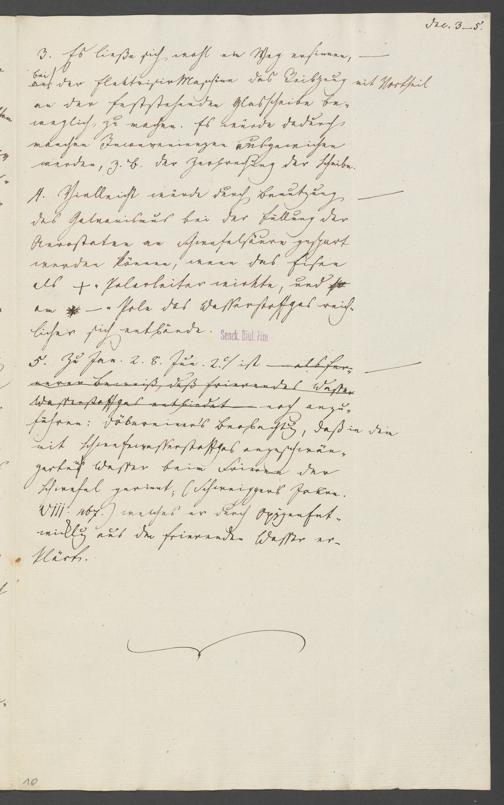 Dec. 3_5.
3. Es ließe sich wohl ein Weg ersinnen, —
bei der Elektrisir Maschine das Reibzeug mit Vortheil
an der feststehenden Glasscheibe be-
weglich zu machen. Es würde dadurch
manchen Inconvenienzen ausgewichen
werden, z. B. der Zerbrechung der Scheibe.
4. Vielleicht würde durch Benutzung —
des Galvanismus bei der Füllung der
Aerostaten an Schwefelsäure gespart
werden können, wenn das Eisen
als + Polarleiter wirkte, und
am — Pole das Wasserstoffgas reich-
licher sich entbände.
Senck. Bibl. Ffm
5. Zu Jan. 2. 8. Jun. 2. ist — als fer- —
nerer Beweiß daß frierendes Wasser
Wasserstoffgas entbindet — noch anzu-
führen: Döbereiner's Beobachtg, daß in dem
mit Schwefelwasserstoffgas angeschwän-
gerten Wasser beim Frieren der
Schwefel gerinnt, (Schweiggers Journ.
VIII. ) welches er durch Oxygenent-
wicklg aus dem frierenden Wasser er-
klärt.
10